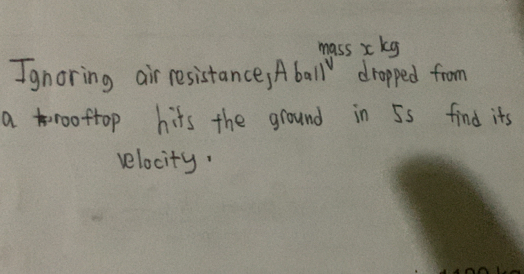 mass x kg
Ignoring air resistance, A ball dropped from
a rooftop hits the ground in 5s find its
velocity.